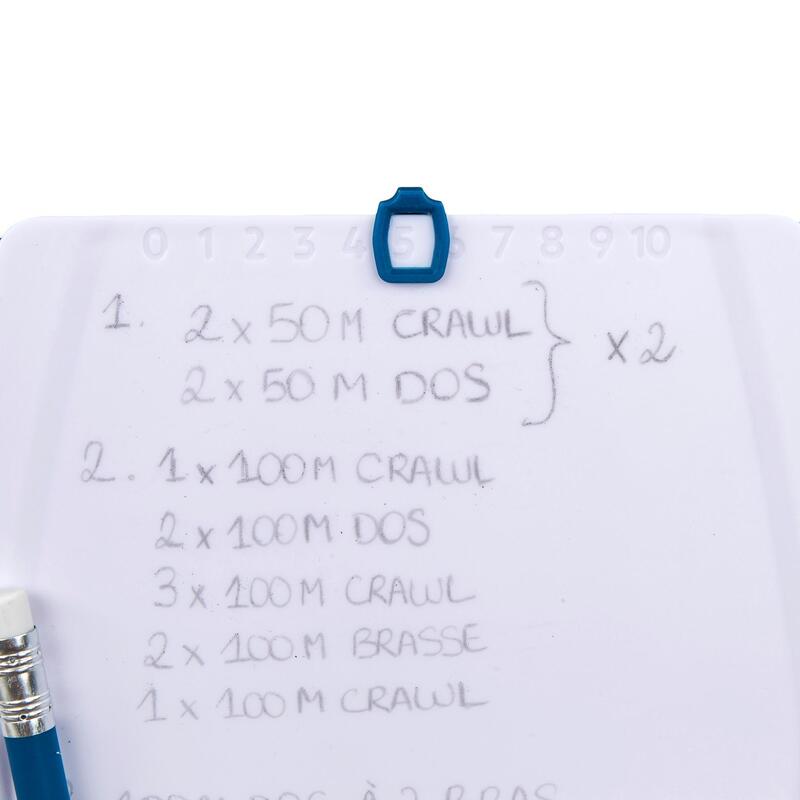 0 1 2 3 4 5 6 7 8 9 10
1. 2 x 50 M CRAWL } x 2
2 x 50 M DOS
2. 1 x 100 M CRAWL
2 x 100 M DOS
3 x 100 M CRAWL
2 x 100 M BRASSE
1 x 100 M CRAWL
100 M DOS À 2 BRAS